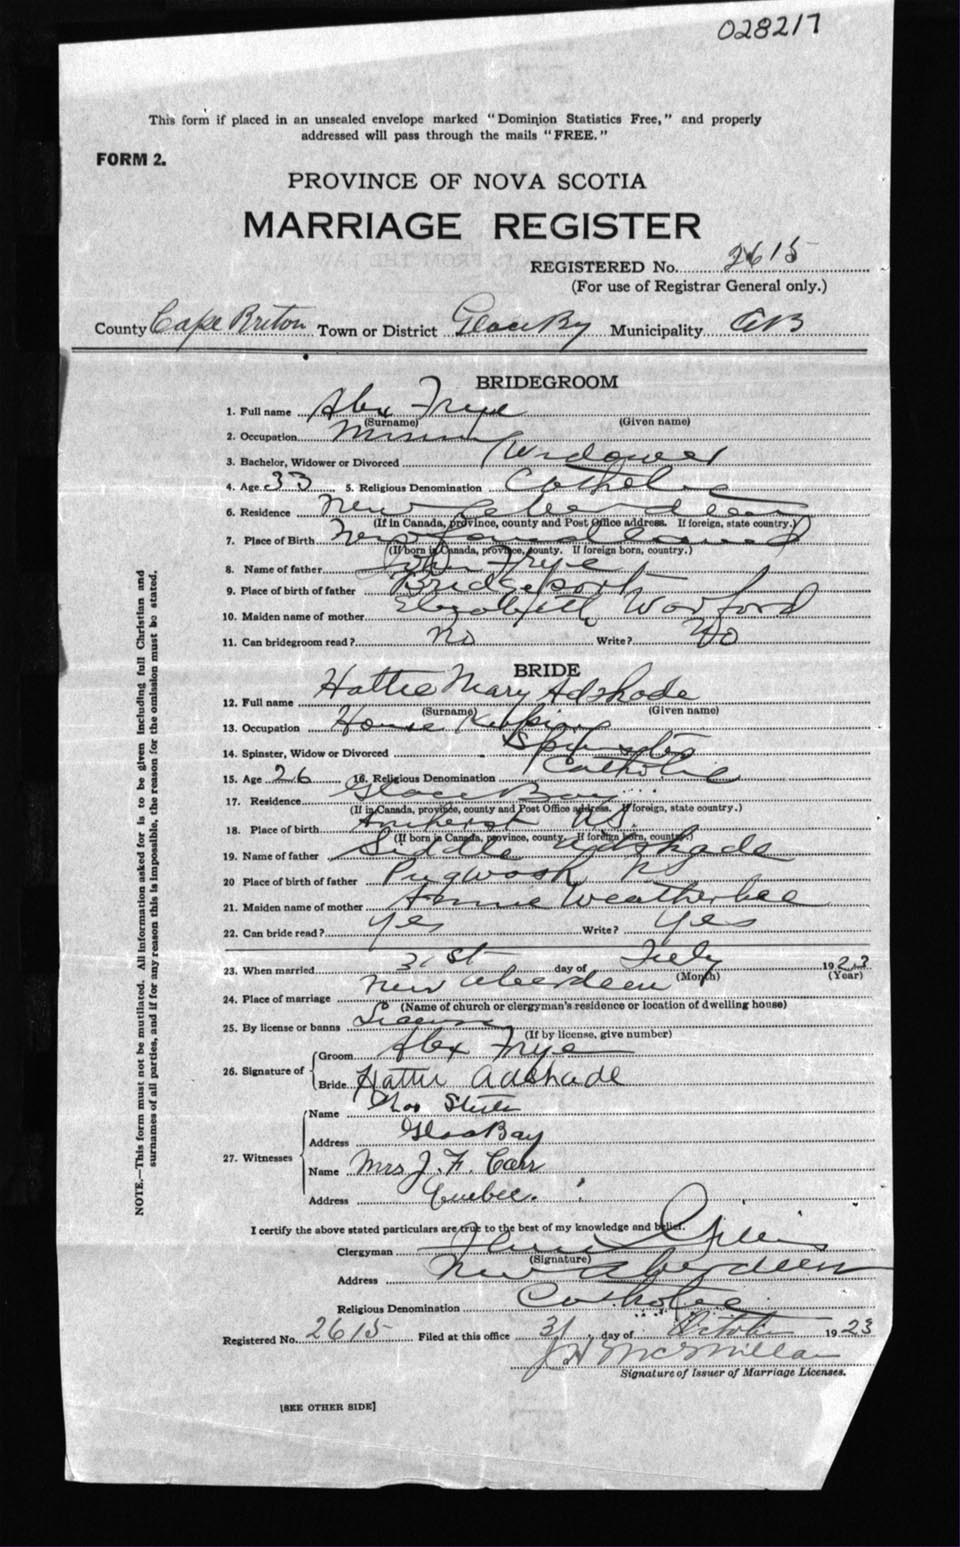 028217
This form if placed in an unsealed envelope marked "Dominion Statistics Free," and properly
addressed will pass through the mails "FREE."
FORM 2.
PROVINCE OF NOVA SCOTIA
MARRIAGE REGISTER
REGISTERED No. 2615
(For use of Registrar General only.)
County Cape Briton Town or District Glace By Municipality GB
BRIDEGROOM
1. Full name Alex Frye
(Surname) (Given name)
2. Occupation
3. Bachelor, Widower or Divorced Widower
4. Age 33 5. Religious Denomination Catholic
6. Residence New Aberdeen
(If in Canada, province, county and Post Office address. If foreign, state country.)
7. Place of Birth Newfoundland
(If born in Canada, province, county. If foreign born, country.)
8. Name of father John Frye
9. Place of birth of father Bridgeport
10. Maiden name of mother Elizabeth Warford
11. Can bridegroom read? No Write? No
BRIDE
12. Full name Hattie Mary Adshade
(Surname) (Given name)
13. Occupation House
14. Spinster, Widow or Divorced Spinster
15. Age 26 16. Religious Denomination Catholic
17. Residence Glace Bay
(If in Canada, province, county and Post Office address. If foreign, state country.)
18. Place of birth Amherst N.S.
(If born in Canada, province, county. If foreign born, country.)
19. Name of father Adshade
20 Place of birth of father Pugwash NS
21. Maiden name of mother Annie Weatherbee
22. Can bride read? Yes Write? Yes
23. When married 31st day of July 1923
(Month) (Year)
24. Place of marriage New Aberdeen
(Name of church or clergyman's residence or location of dwelling house)
25. By license or banns License
(If by license, give number)
26. Signature of Groom Alex Frye
Bride Hattie Adshade
27. Witnesses Name
Address Glace Bay
Name Mrs J. F. Carr
Address Quebec.
I certify the above stated particulars are true to the best of my knowledge and belief.
Clergyman
(Signature)
Address New Aberdeen
Religious Denomination Catholic
Registered No. 2615 Filed at this office 31 day of October 1923
J H McMillan
Signature of Issuer of Marriage Licenses.
[SEE OTHER SIDE]
NOTE.—This form must not be mutilated. All information asked for is to be given including full Christian and
surnames of all parties, and if for any reason this is impossible, the reason for the omission must be stated.